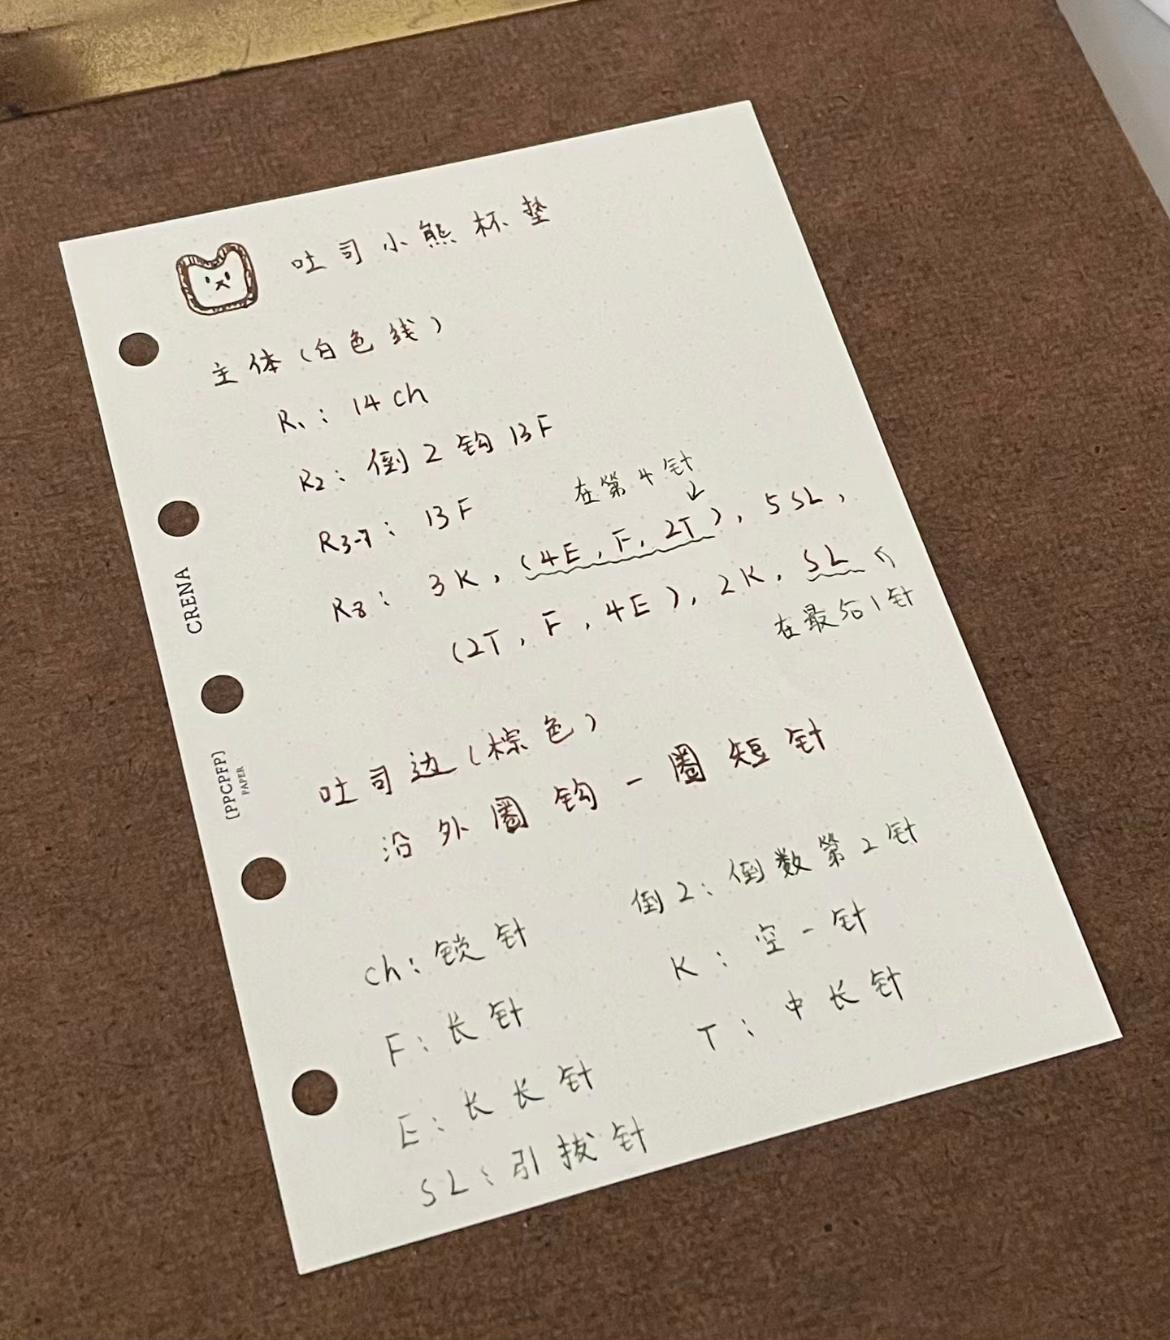 吐司小熊杯垫
主体(白色线)
R1: 14 ch
R2: 倒2钩13F
R3-7: 13F
在第4针
R8: 3K, (4E, F, 2T), 5SL,
(2T, F, 4E), 2K, SL
在最后1针
吐司边(棕色)
沿外圈钩一圈短针
倒2: 倒数第2针
ch: 锁针
K: 空一针
F: 长针
T: 中长针
E: 长长针
SL: 引拔针
CRENA
(PPCPFP)
PAPER